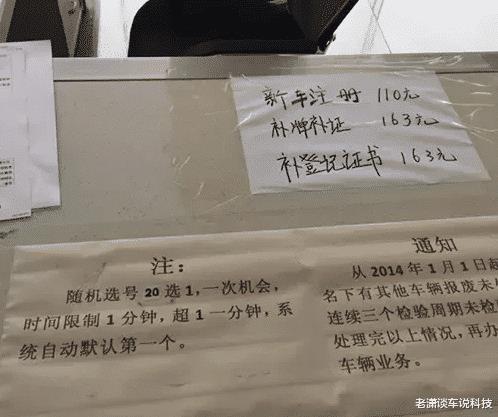 新车注册 110元
补牌补证 163元
补登记证书 163元
注：
随机选号20选1,一次机会，
时间限制1分钟，超1一分钟，系
统自动默认第一个。
通知
从2014年1月1日起
名下有其他车辆报废未
连续三个检验周期未检
处理完以上情况，再办
车辆业务。
老潇谈车说科技